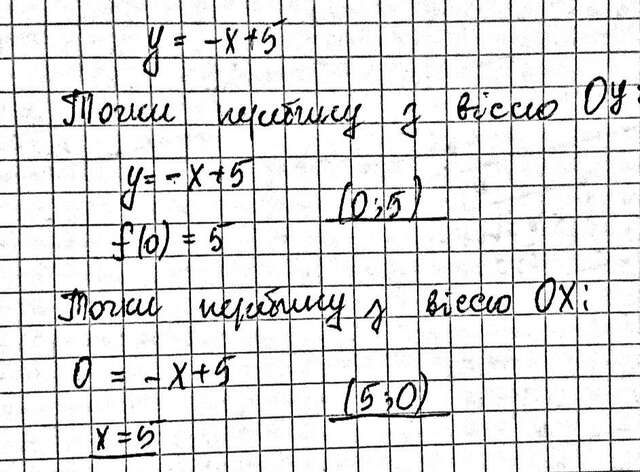 y = -x+5
Точки перетину з віссю Oy:
y = -x+5
(0;5)
f(0) = 5
Точки перетину з віссю OX:
0 = -x+5
(5;0)
x=5